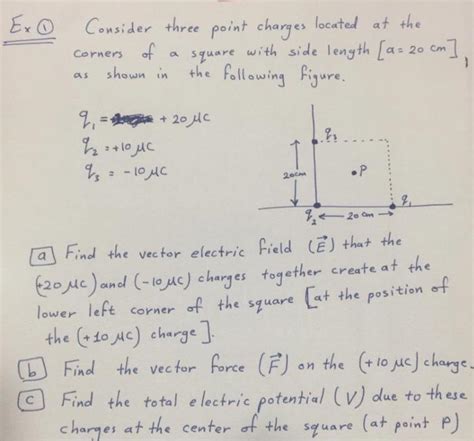 Ex ① Consider three point charges located at the
corners of a square with side length [a = 20 cm],
as shown in the following figure.
q₁ = + 20 μC
q₂ = +10 μC
q₃ = - 10 μC
q₃
20cm
P
q₁
q₂ ← 20 cm →
a Find the vector electric field (E⃗) that the
(+20 μC) and (-10 μC) charges together create at the
lower left corner of the square [at the position of
the (+10 μC) charge].
b Find the vector force (F⃗) on the (+10 μC) charge.
c Find the total electric potential (V) due to these
charges at the center of the square (at point P)